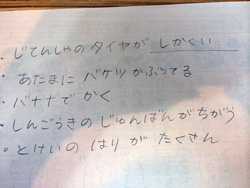 ・じてんしゃのタイヤが しかくい
・あたまに バケツ かぶってる
・バナナで かく
・しんごうきの じゅんばんがちがう
・とけいの はり が たくさん